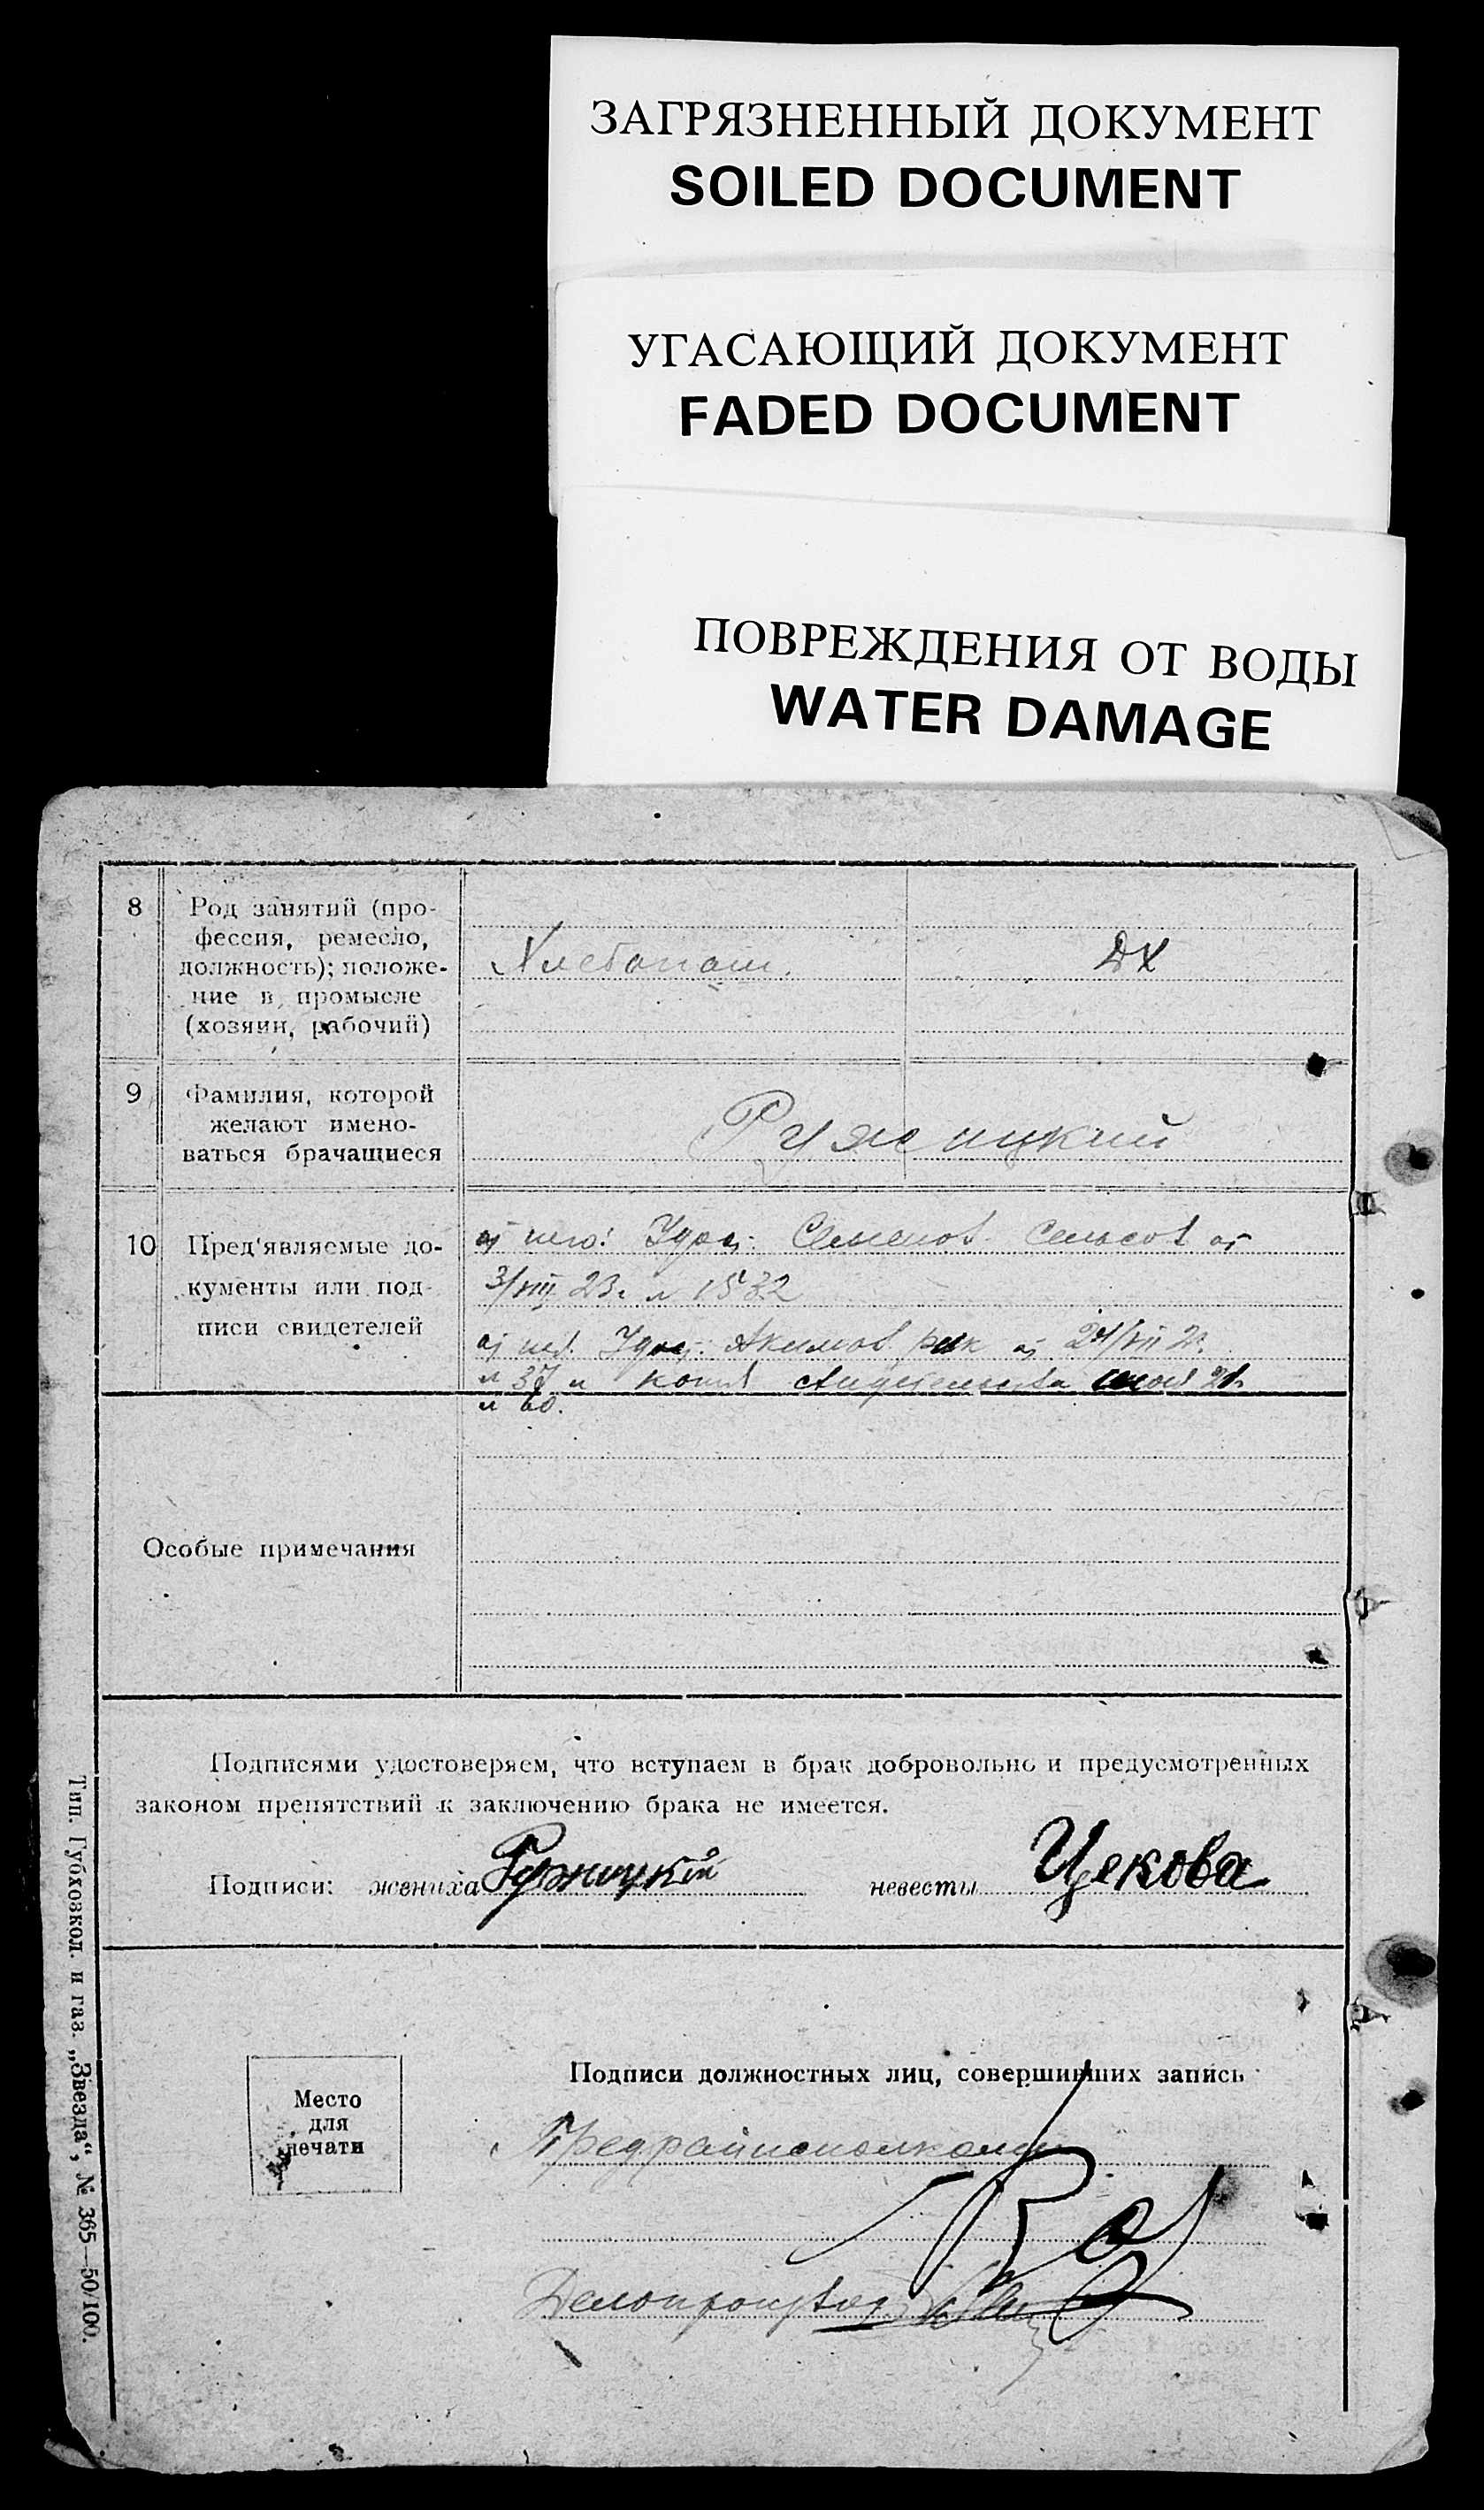 ЗАГРЯЗНЕННЫЙ ДОКУМЕНТ
SOILED DOCUMENT
УГАСАЮЩИЙ ДОКУМЕНТ
FADED DOCUMENT
ПОВРЕЖДЕНИЯ ОТ ВОДЫ
WATER DAMAGE
8 Род занятий (про-
фессия, ремесло,
должность); положе-
ние в промысле
(хозяин, рабочий)
Хлебопаш.
ДХ
9 Фамилия, которой
желают имено-
ваться брачащиеся
Ружицкий
10 Пред'являемые до-
кументы или под-
писи свидетелей
от него: Удост. Семенов. Сельсов от
3/VIII 23г. № 1532
от нея. Удост. Акимов. рик от 24/VII 23.
№ 37 и копия свидетельства
№ 60.
Особые примечания
Подписями удостоверяем, что вступаем в брак добровольно и предусмотренных
законом препятствий к заключению брака не имеется.
Подписи: жениха Ружицкий невесты Цекова
Место
для
печати
Подписи должностных лиц, совершивших запись
Предрайисполкома
Делопроизвод
Тип. Губхозкол. и газ. „Звезда“, № 365—50/100.